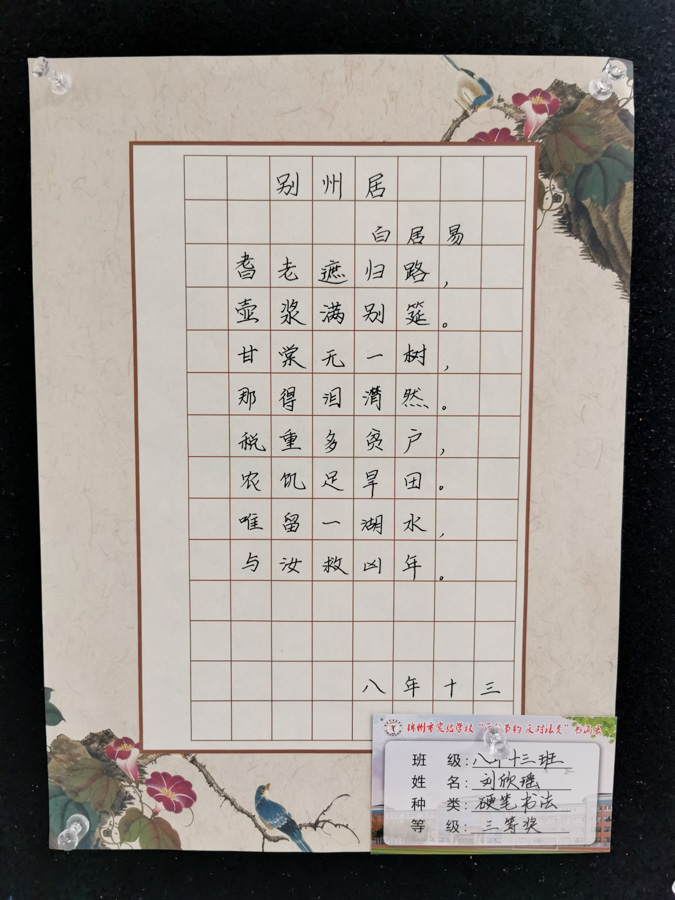 别州居
白居易
耆老遮归路，
壶浆满别筵。
甘棠无一树，
那得泪潸然。
税重多贫户，
农饥足旱田。
唯留一湖水，
与汝救凶年。
八年十三
锦州市实验学校“厉行节约 反对浪费”书画展
班 级：八年十三班
姓 名：刘欣瑶
种 类：硬笔书法
等 级：三等奖